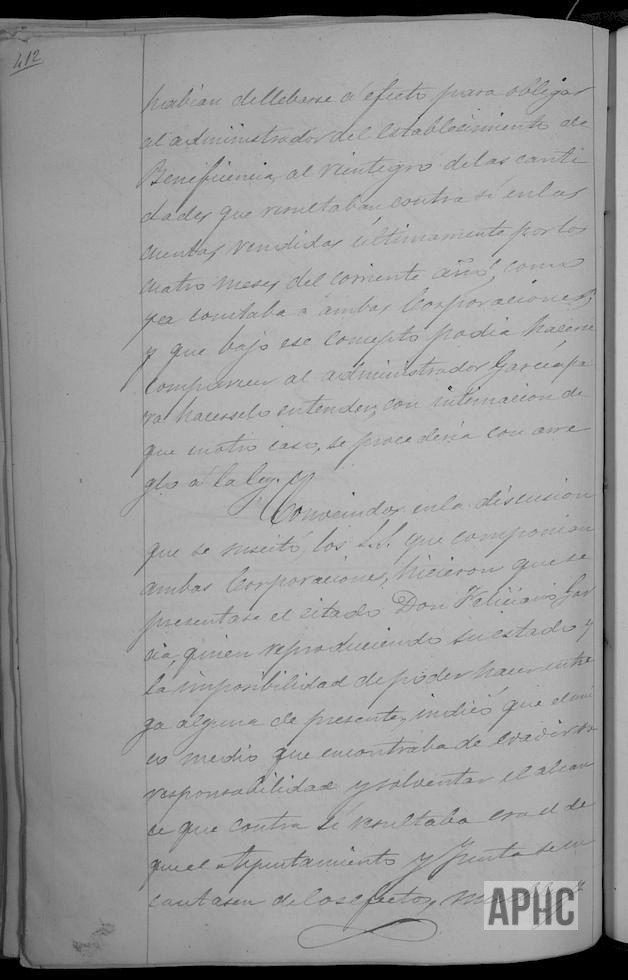 412
habian dellebarse á efecto para obligar
al administrador del Establecimiento de
Beneficencia, al reintegro delas canti
dades que resultaban contra sí enlas
cuentas rendidas últimamente por los
cuatro meses del corriente año, como
ya constaba á ambas Corporaciones,
y que bajo ese concepto podia hacerse
comparecer al administrador Garcia pa
ra hacerselo entender, con intimacion de
que en otro caso, se procederia con arre
glo á la ley.
Convenidos enla discusion
que se suscitó, los S.S. que componian
ambas Corporaciones, hicieron que se
presentase el citado Don Feliciano Gar
cia, quien reproduciendo su estado y
la imposibilidad de poder hacer entre
ga alguna de presente, indicó que el uni
co medio que encontraba de evadir su
responsabilidad y solventar el alcan
ce que contra sí resultaba era el de
que el Ayuntamiento y Junta se in
cautasen de los efectos,
APHC